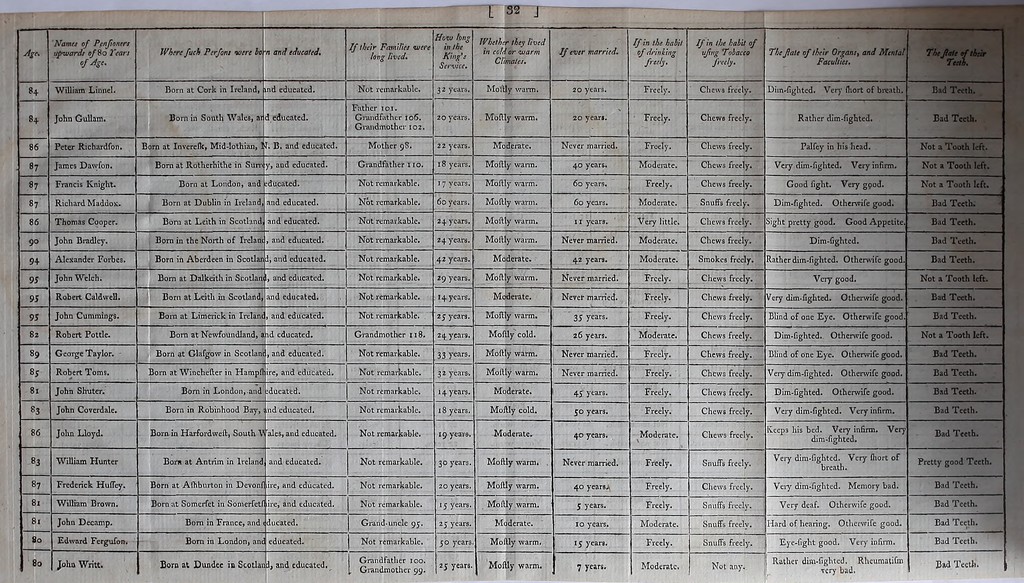 [ 32 ]
Age. Names of Penſioners upwards of 80 Years of Age. Where ſuch Perſons were born and educated. If their Families were long lived. How long in the King's Service. Whether they lived in cold or warm Climates. If ever married. If in the habit of drinking freely. If in the habit of uſing Tobacco freely. The ſtate of their Organs, and Mental Faculties. The ſtate of their Teeth.
84 William Linnel. Born at Cork in Ireland, and educated. Not remarkable. 32 years. Moſtly warm. 20 years. Freely. Chews freely. Dim-ſighted. Very ſhort of breath. Bad Teeth.
84 John Gullam. Born in South Wales, and educated. Father 101. Grandfather 106. Grandmother 102. 20 years. Moſtly warm. 20 years. Freely. Chews freely. Rather dim-ſighted. Bad Teeth.
86 Peter Richardſon. Born at Invereſk, Mid-lothian, N. B. and educated. Mother 98. 22 years. Moderate. Never married. Freely. Chews freely. Palſey in his head. Not a Tooth left.
87 James Dawſon. Born at Rotherhithe in Surrey, and educated. Grandfather 110. 18 years. Moſtly warm. 40 years. Moderate. Chews freely. Very dim-ſighted. Very infirm. Not a Tooth left.
87 Francis Knight. Born at London, and educated. Not remarkable. 17 years. Moſtly warm. 60 years. Freely. Chews freely. Good ſight. Very good. Not a Tooth left.
87 Richard Maddox. Born at Dublin in Ireland, and educated. Not remarkable. 60 years. Moſtly warm. 60 years. Moderate. Snuffs freely. Dim-ſighted. Otherwiſe good. Bad Teeth.
86 Thomas Cooper. Born at Leith in Scotland, and educated. Not remarkable. 24 years. Moſtly warm. 11 years. Very little. Chews freely. Sight pretty good. Good Appetite. Bad Teeth.
90 John Bradley. Born in the North of Ireland, and educated. Not remarkable. 24 years. Moſtly warm. Never married. Moderate. Chews freely. Dim-ſighted. Bad Teeth.
94 Alexander Forbes. Born in Aberdeen in Scotland, and educated. Not remarkable. 42 years. Moderate. 42 years. Moderate. Smokes freely. Rather dim-ſighted. Otherwiſe good. Bad Teeth.
95 John Welch. Born at Dalkeith in Scotland, and educated. Not remarkable. 29 years. Moſtly warm. Never married. Freely. Chews freely. Very good. Not a Tooth left.
95 Robert Caldwell. Born at Leith in Scotland, and educated. Not remarkable. 14 years. Moderate. Never married. Freely. Chews freely. Very dim-ſighted. Otherwiſe good. Bad Teeth.
95 John Cummings. Born at Limerick in Ireland, and educated. Not remarkable. 25 years. Moſtly warm. 35 years. Freely. Chews freely. Blind of one Eye. Otherwiſe good. Bad Teeth.
82 Robert Pottle. Born at Newfoundland, and educated. Grandmother 118. 24 years. Moſtly cold. 26 years. Moderate. Chews freely. Dim-ſighted. Otherwiſe good. Not a Tooth left.
89 George Taylor. Born at Glaſgow in Scotland, and educated. Not remarkable. 33 years. Moſtly warm. Never married. Freely. Chews freely. Blind of one Eye. Otherwiſe good. Bad Teeth.
85 Robert Toms. Born at Wincheſter in Hampſhire, and educated. Not remarkable. 32 years. Moſtly warm. Never married. Freely. Chews freely. Very dim-ſighted. Otherwiſe good. Bad Teeth.
81 John Shuter. Born in London, and educated. Not remarkable. 14 years. Moderate. 45 years. Freely. Chews freely. Dim-ſighted. Otherwiſe good. Bad Teeth.
83 John Coverdale. Born in Robinhood Bay, and educated. Not remarkable. 18 years. Moſtly cold. 50 years. Freely. Chews freely. Very dim-ſighted. Very infirm. Bad Teeth.
86 John Lloyd. Born in Harfordweſt, South Wales, and educated. Not remarkable. 19 years. Moderate. 40 years. Moderate. Chews freely. Keeps his bed. Very infirm. Very dim-ſighted. Bad Teeth.
83 William Hunter Born at Antrim in Ireland, and educated. Not remarkable. 30 years. Moſtly warm. Never married. Freely. Snuffs freely. Very dim-ſighted. Very ſhort of breath. Pretty good Teeth.
87 Frederick Huſſey. Born at Aſhburton in Devonſhire, and educated. Not remarkable. 20 years. Moſtly warm. 40 years. Freely. Chews freely. Very dim-ſighted. Memory bad. Bad Teeth.
81 William Brown. Born at Somerſet in Somerſetſhire, and educated. Not remarkable. 15 years. Moſtly warm. 5 years. Freely. Snuffs freely. Very deaf. Otherwiſe good. Bad Teeth.
81 John Decamp. Born in France, and educated. Grand-uncle 95. 25 years. Moderate. 10 years. Moderate. Snuffs freely. Hard of hearing. Otherwiſe good. Bad Teeth.
80 Edward Ferguſon. Born in London, and educated. Not remarkable. 50 years. Moſtly warm. 15 years. Freely. Snuffs freely. Eye-ſight good. Very infirm. Bad Teeth.
80 John Writt. Born at Dundee in Scotland, and educated. Grandfather 100. Grandmother 99. 25 years. Moſtly warm. 7 years. Moderate. Not any. Rather dim-ſighted. Rheumatiſm very bad. Bad Teeth.